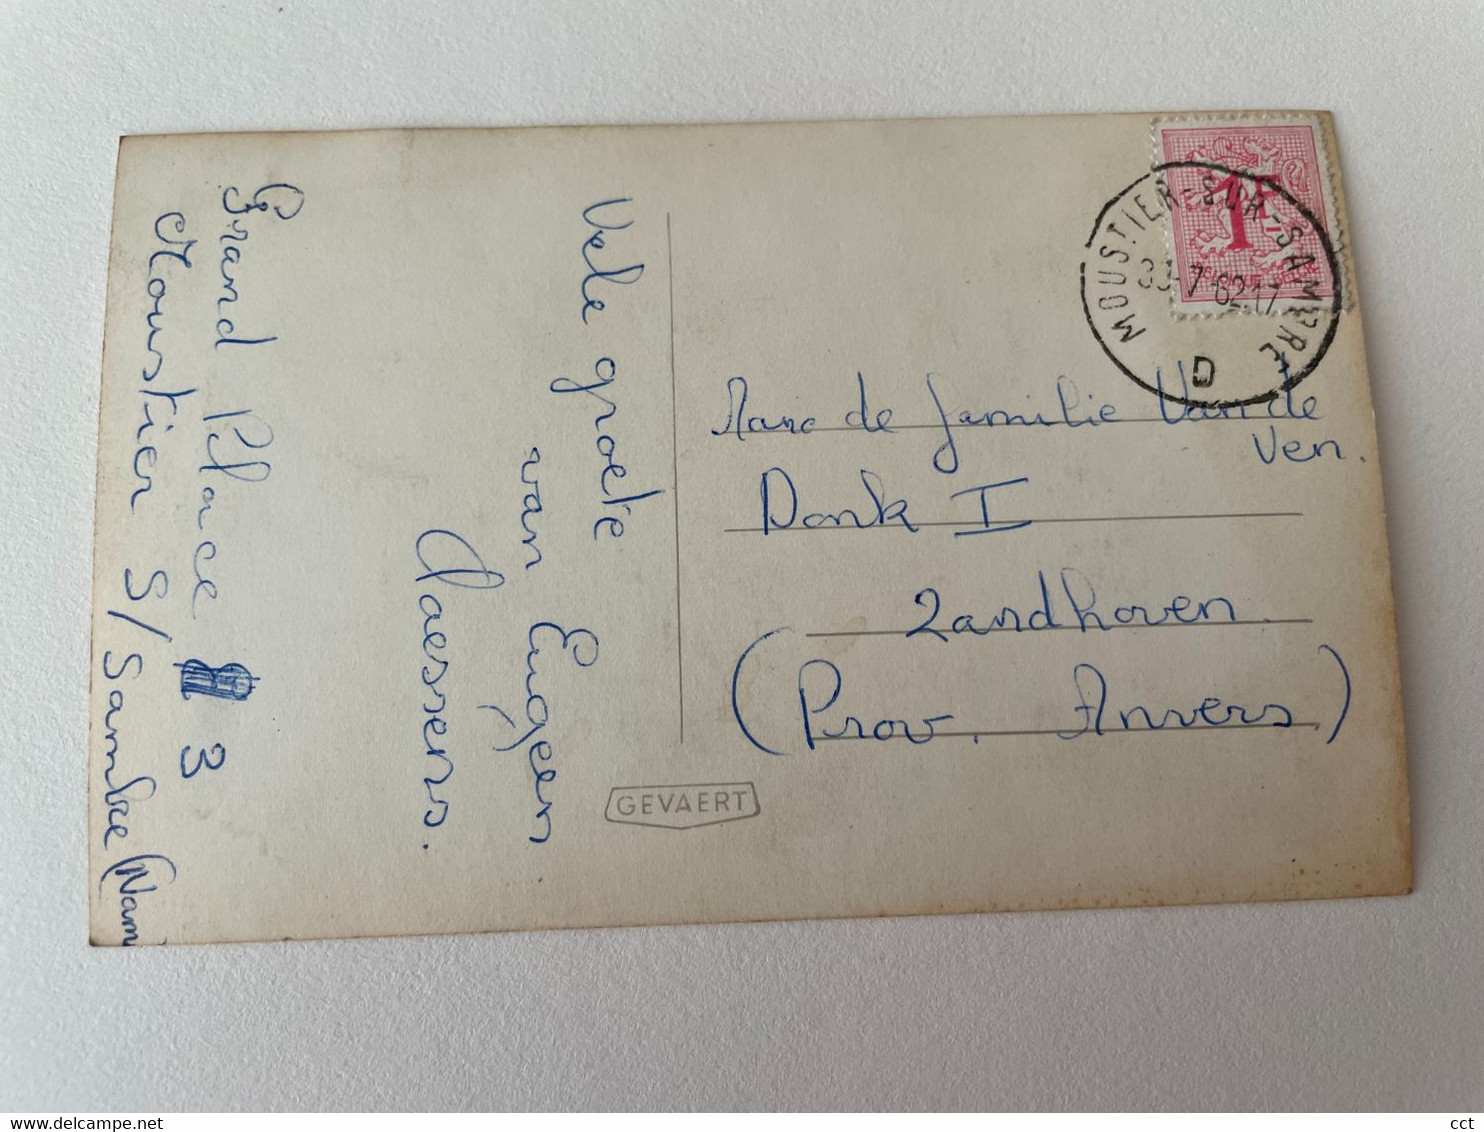 Vele groete
van Eugeen
Claessens.
Grand Place 3
Moustier S/Sambre (Nam
MOUSTIER-SUR-SAMBRE
-7-62 17
D
1F
Aan de familie Van de
Ven.
Donk I
Zandhoven.
(Prov. Anvers)
GEVAERT
cct